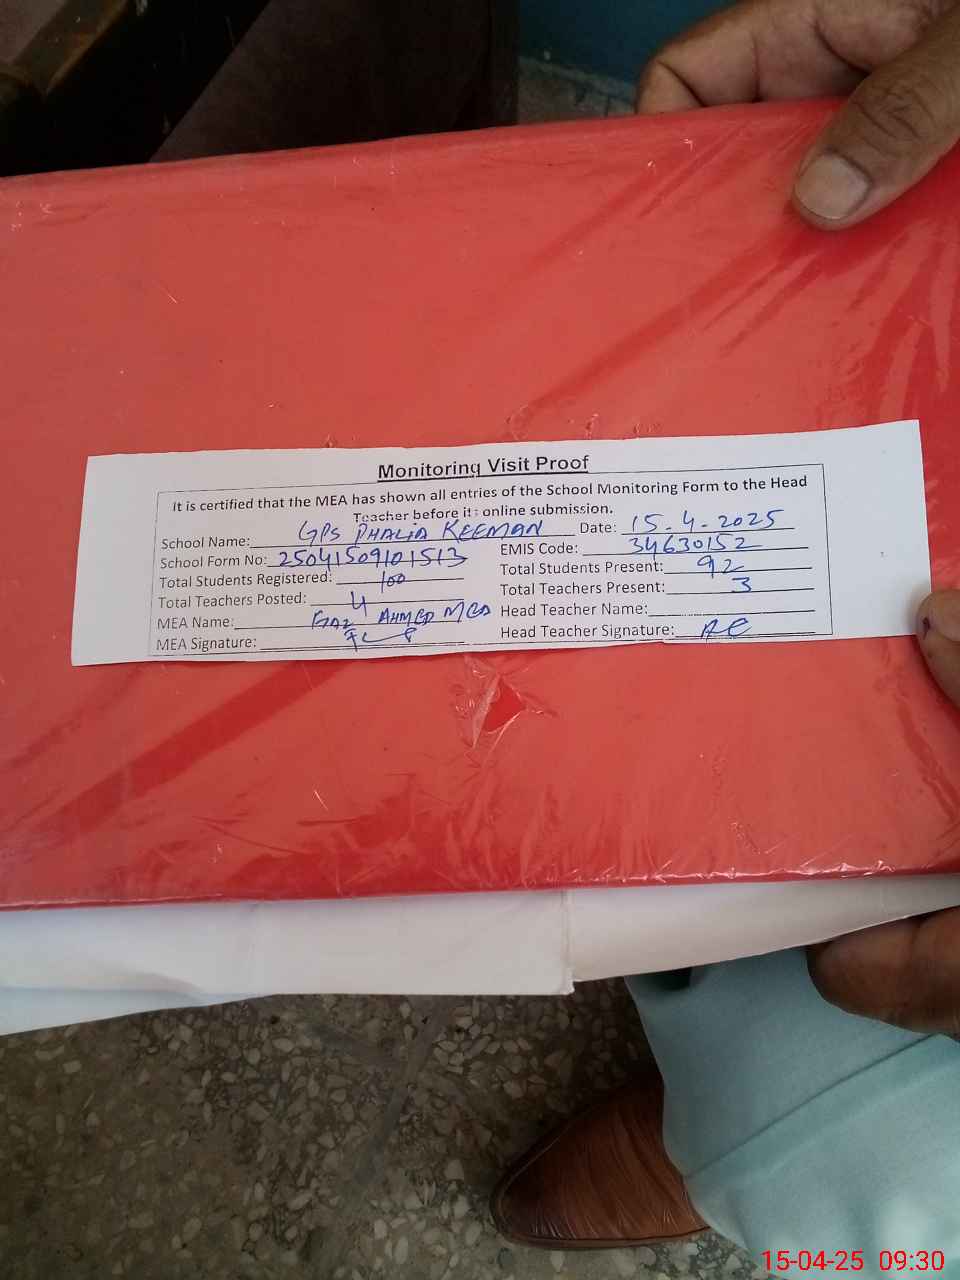 Monitoring Visit Proof
It is certified that the MEA has shown all entries of the School Monitoring Form to the Head
Teacher before it: online submission.
School Name: GPS PHALIA KEEMAN Date: 15-4-2025
School Form No: 25041509101513 EMIS Code: 34630152
Total Students Registered: 100 Total Students Present: 92
Total Teachers Posted: 4 Total Teachers Present: 3
MEA Name: AHMED MEA Head Teacher Name:
MEA Signature: Head Teacher Signature:
15-04-25 09:30